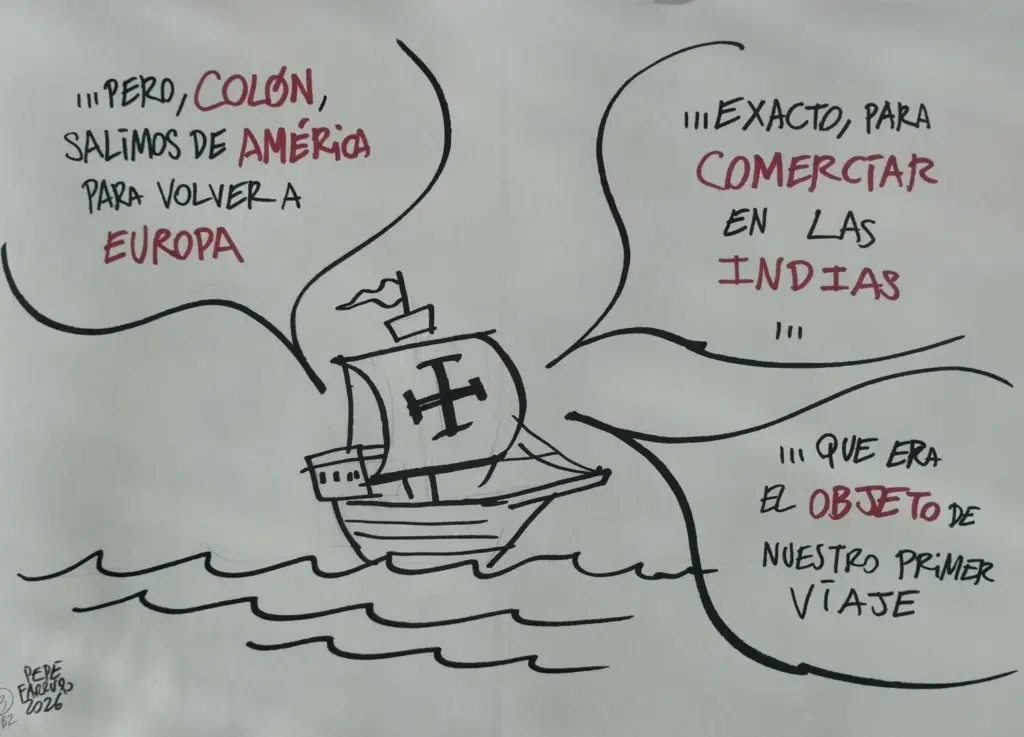 ...PERO, COLÓN,
SALIMOS DE AMÉRICA
PARA VOLVER A
EUROPA
...EXACTO, PARA
COMERCIAR
EN LAS
INDIAS
...
...QUE ERA
EL OBJETO DE
NUESTRO PRIMER
VIAJE
PEPE
FARRUQO
2026